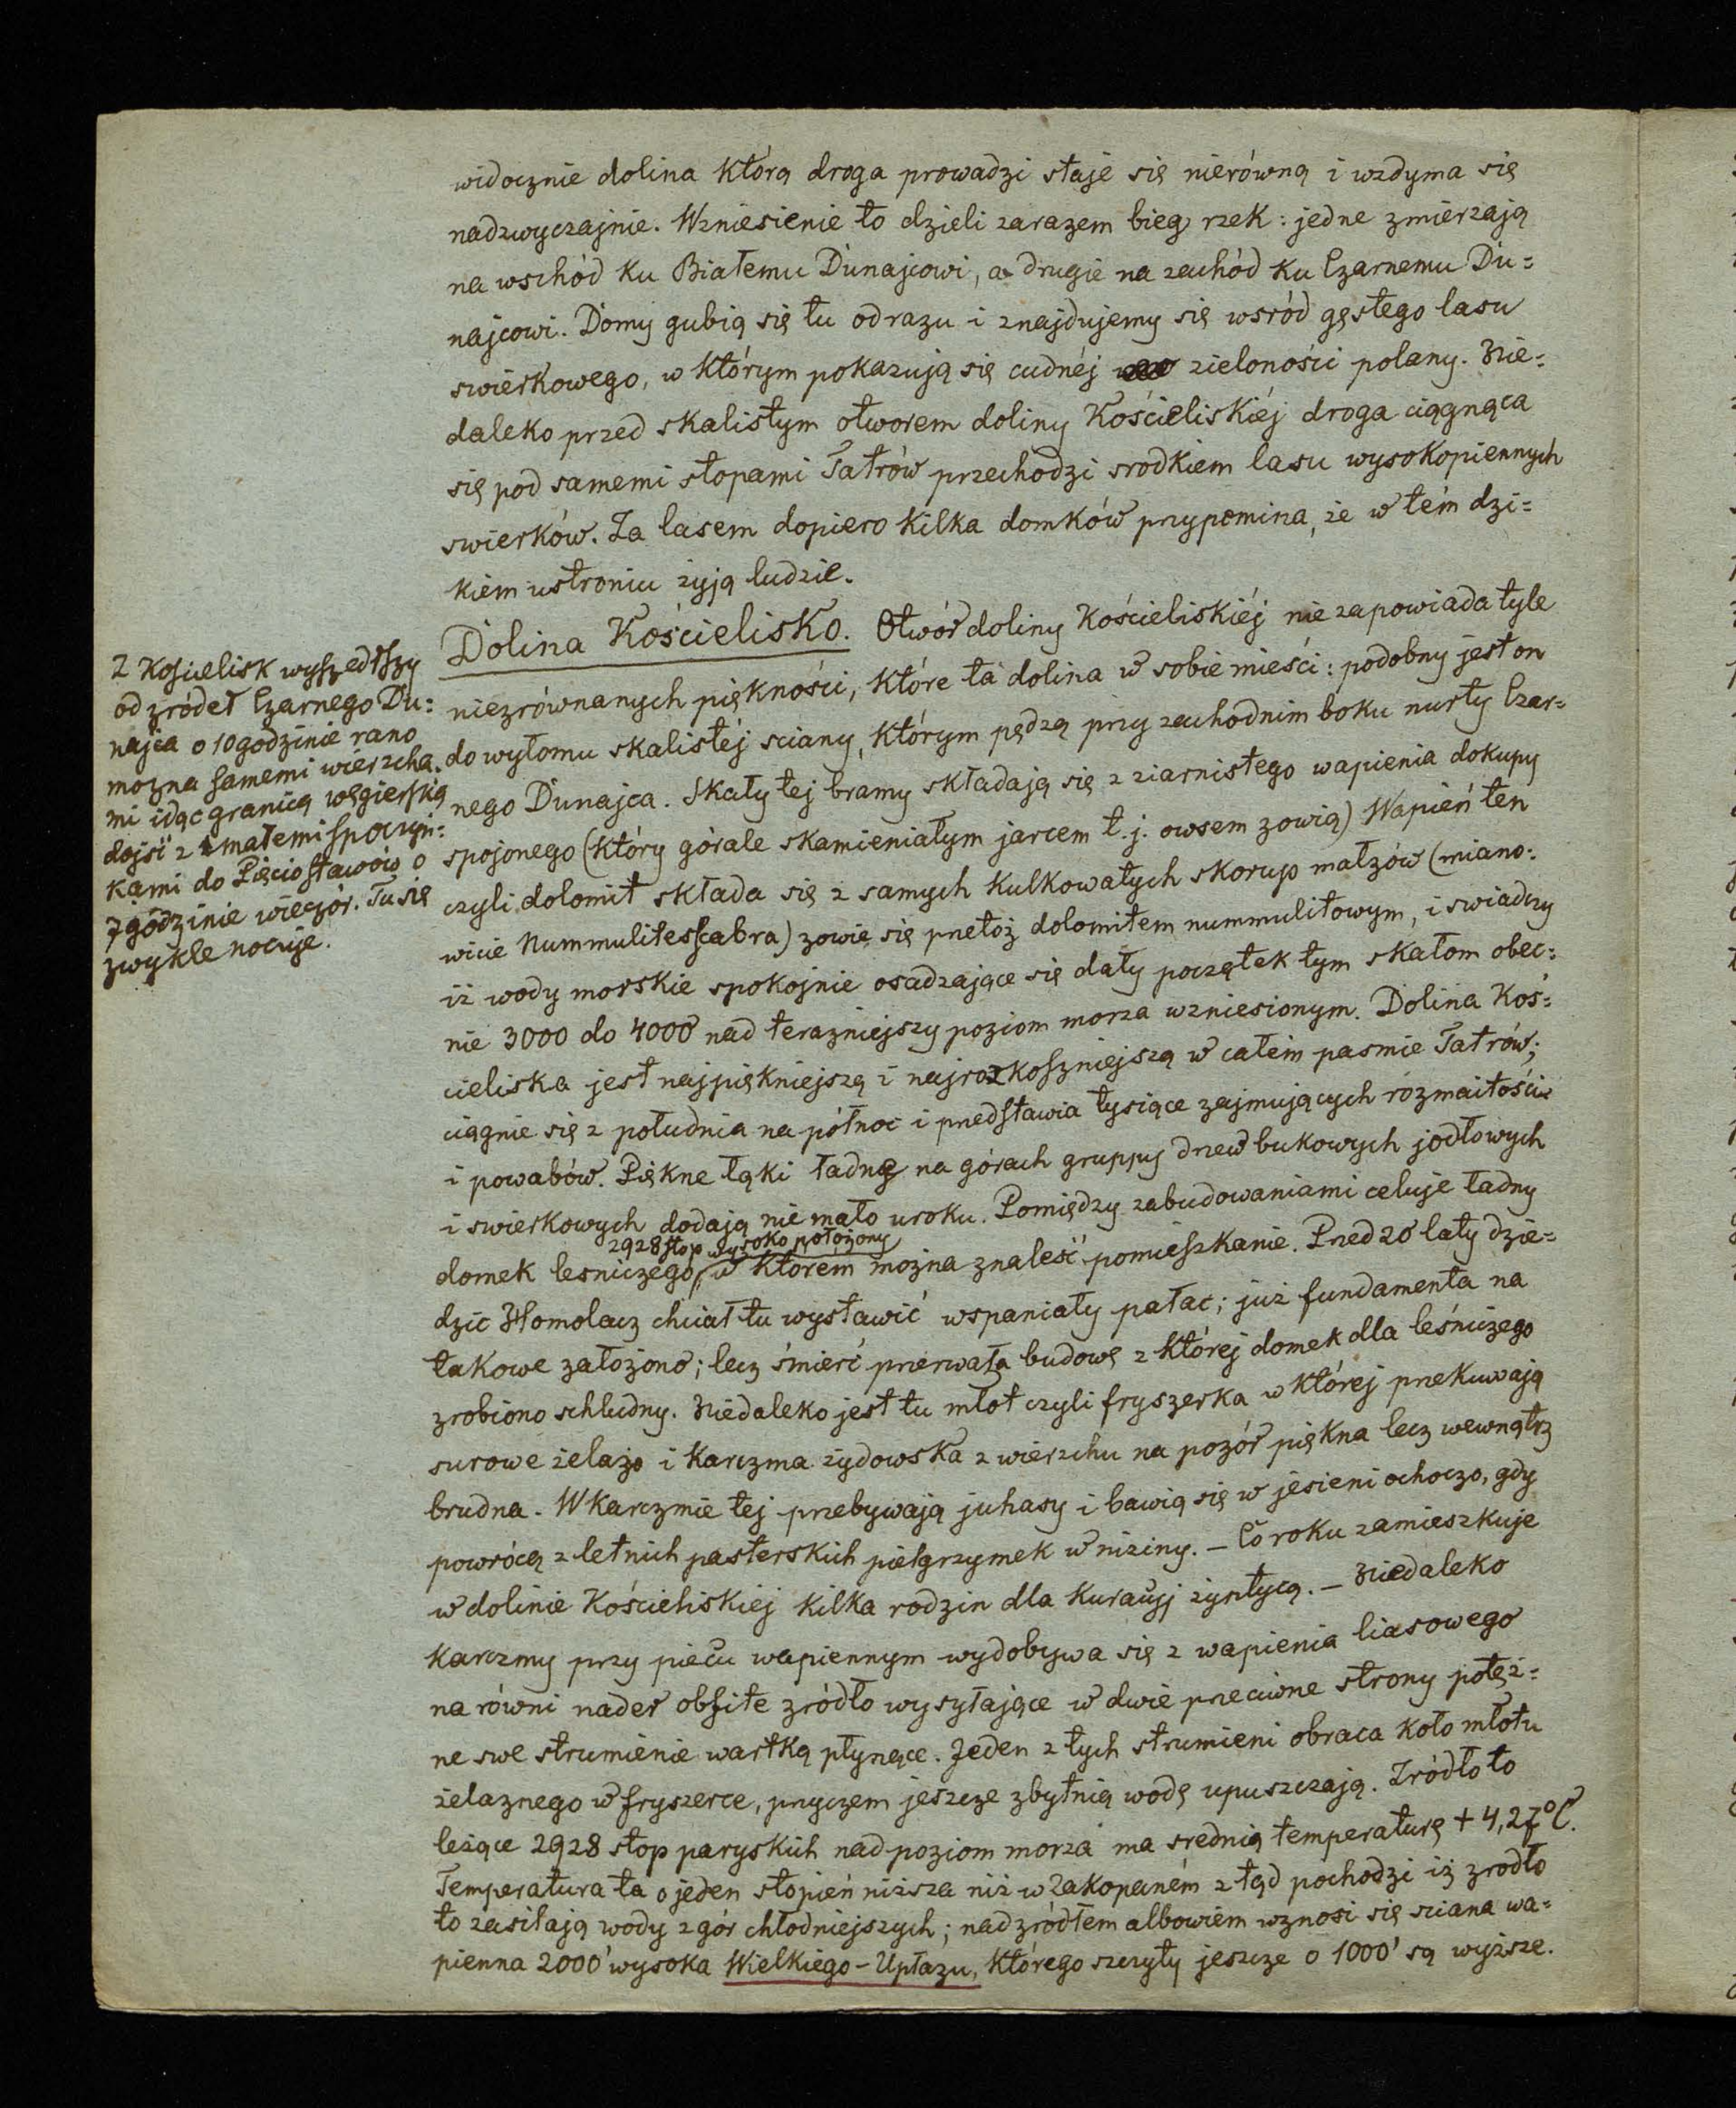 widocznie dolina którą droga prowadzi staje się nierówną i wzdyma się
nadzwyczajnie. Wzniesienie to dzieli zarazem bieg rzek : jedne zmierzają
na wschód ku Białemu Dunajcowi, a drugie na zachód ku Czarnemu Du=
najcowi. Domy gubią się tu odrazu i znajdujemy się wsród gęstego lasu
swierkowego, w którym pokazują się cudnéj zieloności polany. Nie=
daleko przed skalistym otworem doliny Kościeliskiéj droga ciągnąca
się pod samemi stopami Tatrów przechodzi srodkiem lasu wysokopiennych
swierków. Za lasem dopiero kilka domków przypomina, że w tém dzi=
kiem ustroniu żyją ludzie.
Dolina Kościelisko. Otwór doliny Kościeliskiéj nie zapowiada tyle
niezrównanych piękności, które ta dolina w sobie mieści : podobny jest on
do wyłomu skalistéj sciany, którym pędzą przy zachodnim boku nurty Czar=
nego Dunajca. Skały tej bramy składają się z ziarnistego wapienia dokupy
spojonego (który górale skamieniałym jarcem t.j. owsem zowią) Wapień ten
czyli dolomit składa się z samych kulkowatych skorup małzów (miano=
wicie Nummulites scabra) zowie się przetóż dolomitem nummulitowym, i swiadczy
iż wody morskie spokojnie osadzające się dały początek tym skałom obec=
nie 3000 do 4000' nad terazniejszy poziom morza wzniesionym. Dolina Koś=
cieliska jest najpiękniejszą i najrozkoszniejszą w całém pasmie Tatrów;
ciągnie się z południa na północ i przedstawia tysiące zajmujących rozmaitości
i powabów. Piękne łąki ładne na górach gruppy drzew bukowych jodłowych
i swierkowych dodają nie mało uroku. Pomiędzy zabudowaniami celuje ładny
2928 stop wysoko położony
domek lesniczego, w którém można znaleść pomieszkanie. Przed 20 laty dzie=
dzic Homolacz chciał tu wystawić wspaniały pałac; już fundamenta na
takowe założono; lecz śmierć przerwała budowę z której domek dla leśniczego
zrobiono schludny. Niedaleko jest tu młot czyli fryszerka w której przekuwają
surowe żelazo i karczma żydowska z wierzchu na pozór piękna lecz wewnątrz
brudna. W karczmie tej przebywają juhasy i bawią się w jesieni ochoczo, gdy
powrócą z letnich pasterskich pielgrzymek w niziny. – Co roku zamieszkuje
w dolinie Kościeliskiej kilka rodzin dla kuracyj żyntycą. – Niedaleko
karczmy przy piecu wapiennym wydobywa się z wapienia liasowego
na równi nader obfite zródło wysyłające w dwie przeciwne strony potęż=
ne swe strumienie wartką płynące. Jeden z tych strumieni obraca koło młotu
żelaznego w fryszerce, przyczem jeszcze zbytnią wodę upuszczają. Zródło to
leżące 2928 stop paryskich nad poziom morza ma srednią temperaturę + 4,27°C.
Temperatura ta o jeden stopień niższa niż w Zakopaném z tąd pochodzi iż zrodło
to zasilają wody z gór chłodniejszych; nad zródłem albowiem wznosi się sciana wa=
pienna 2000' wysoka Wielkiego-Upłazu, którego szczyty jeszcze o 1000' są wyższe.
Z Koscielisk wyszedłszy
od zródeł Czarnego Du=
najca o 10 godzinie rano
mozna samemi wierzcha=
mi idąc granicą węgierską
dojsć z małemi spoczyn=
kami do Pięciostawów o
7 godzinie wieczór. Tu się
zwykle nocuje.